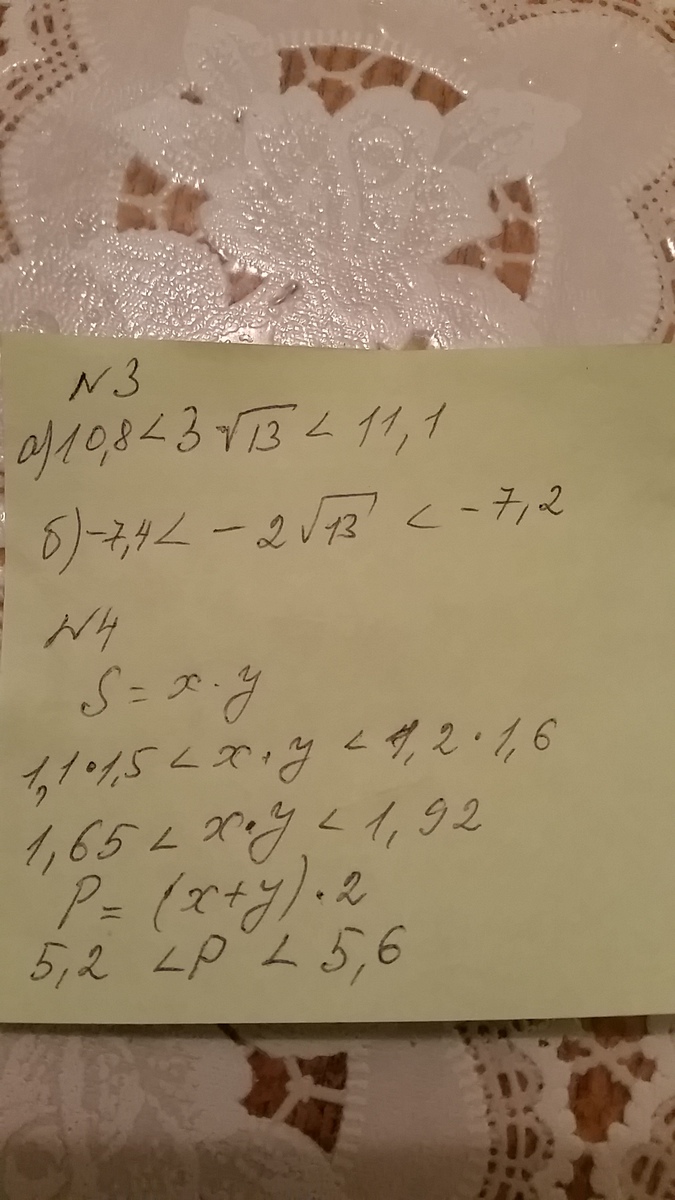 N3
а) 10,8 < 3·√13 < 11,1
б) -7,4 < - 2√13 < -7,2
N4
S = x · y
1,1·1,5 < x · y < 1,2·1,6
1,65 < x·y < 1,92
P = (x+y)·2
5,2 < P < 5,6